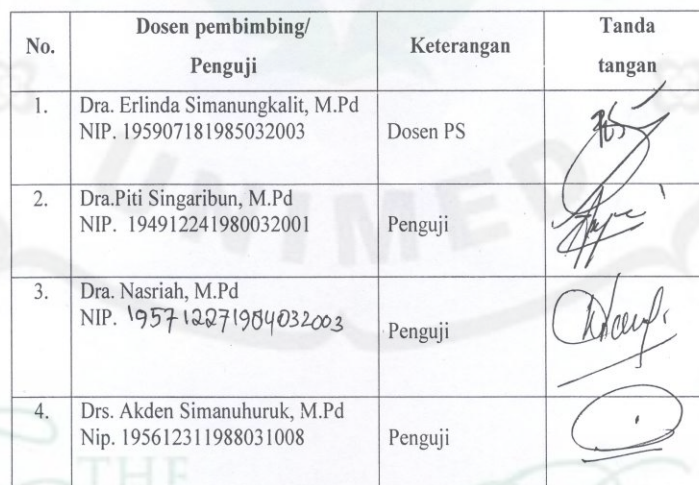 No.
Dosen pembimbing/
Penguji
Keterangan
Tanda
tangan
1.
Dra. Erlinda Simanungkalit, M.Pd
NIP. 195907181985032003
Dosen PS
2.
Dra.Piti Singaribun, M.Pd
NIP. 194912241980032001
Penguji
3.
Dra. Nasriah, M.Pd
NIP. 195712271984032003
Penguji
4.
Drs. Akden Simanuhuruk, M.Pd
Nip. 195612311988031008
Penguji
UNIMED
THE